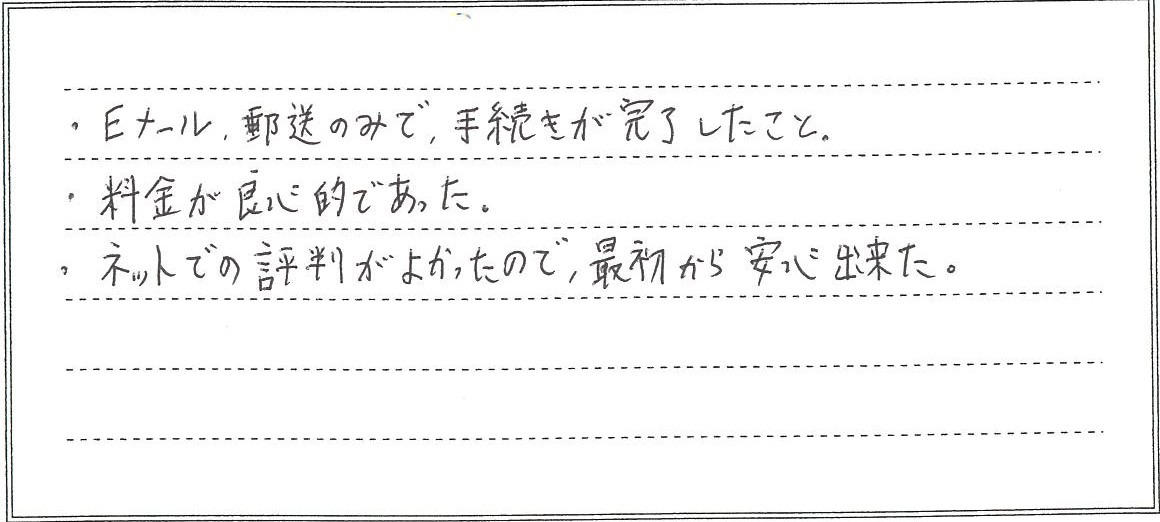 ・Eメール,郵送のみで,手続きが完了したこと.
・料金が良心的であった。
・ネットでの評判がよかったので,最初から安心出来た。